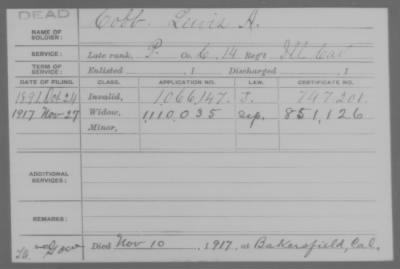 DEAD
NAME OF SOLDIER: Cobb, Lewis A.
SERVICE: Late rank, P. Co. C, 14 Reg't Ill Cav
TERM OF SERVICE: Enlisted , 1 Discharged , 1
DATE OF FILING. CLASS. APPLICATION NO. LAW. CERTIFICATE NO.
1891 Oct 24 Invalid, 1,066,147. J. 747,201.
1917 Nov 27 Widow, 1,110,035 exp. 851,126
Minor,
ADDITIONAL SERVICES:
REMARKS:
Died Nov 10, 1917, at Bakersfield, Cal.